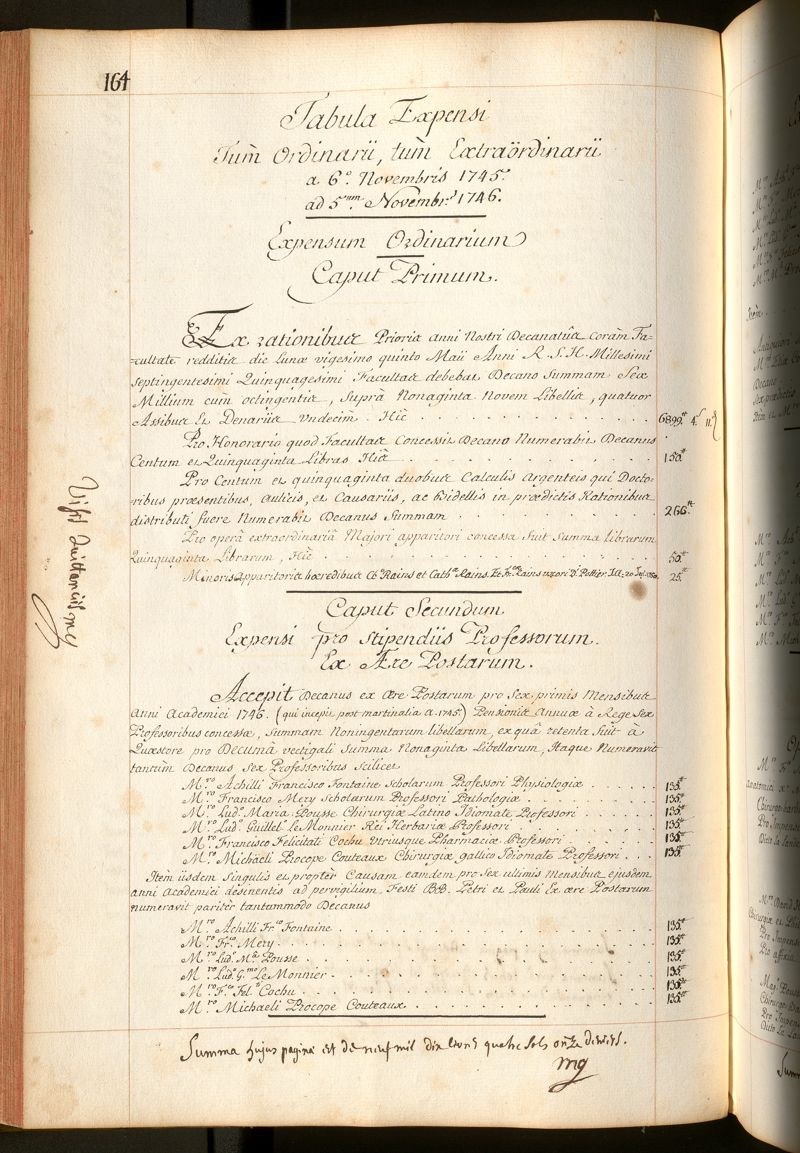 164
Tabula Expensi
Tum̃ Ordinarii, tum̃ Extraördinarii
a 6.º Novembris 1745.
ad 5.um Novembr.s 1746.
Expensum Ordinarium
Caput Primum.
Ex rationibus Prioris anni Nostri Decanatûs coràm Fa-
-cultate redditis die lunæ vigesimo quinto Maii Anni R. S. H. Millesimi
Septingentesimi Quinquagesimi Facultas debebat Decano Summam Sex
Millium cum̃ octingentis, Suprà Nonaginta Novem Libellis, quatuor
Assibus Et Denariis Vndecim. Hic . . . . . . . . . . 6899.tt 4.s 11.d
Pro Honorario quod Facultas Concessit Decano Numerabit Decanus
Centum et Quinquaginta Libras Hic . . . . . . . . . . 150.tt
Pro Centum et quinquaginta duobus Calculis Argenteis qui Docto-
ribus præsentibus, aulicis, et Causariis, ac Bidellis in prædictis Rationibus
distributi fuere Numerabit Decanus Summam . . . . . . . . . . 266.tt
Pro operâ extraordinariâ Majori apparitori concessa fuit Summa librarum
Quinquaginta Librarum, Hic . . . . . . . . . . 50.tt
Minoris apparitoris hæredibus Rains et Cath. Rains. Et Rains uxori Pottier 25.tt
Caput Secundum
Expensi pro Stipendiis Professorum.
Ex Ære Postarum.
Accepit Decanus ex ære Postarum pro Sex primis Mensibus
Anni Academici 1746. (qui incepit post martinalia a. 1745.) Pensionis Annuæ à Rege Sex
Professoribus concessæ, Summam Noningentarum libellarum, ex quâ retenta fuit à
Quæstore pro Decumâ vectigali Summa Nonaginta Libellarum, Itaque Numeravit
tantum Decanus Sex Professoribus Scilicet
M.ro Achilli Francisco Fontaine Scholarum Professori Physiologiæ . . . . . . 135.tt
M.ro Francisco Mery Scholarum Professori Pathologiæ . . . . . . 135.tt
M.ro Lud.º Maria Pousse Chirurgiæ Latino Idiomate Professori . . . . . . 135.tt
M.ro Lud.º Guillel. Le Monnier Rei Herbariæ Professori . . . . . . 135.tt
M.ro Francisco Felicitati Cochu Utriusque Pharmaciæ Professori . . . . . . 135.tt
M.ro Michaeli Procope Couteaux Chirurgiæ gallico Idiomate Professori . . . 135.tt
Item iisdem Singulis et propter Causam eamdem pro Sex ultimis Mensibus ejusdem
anni Academici desinentis ad pervigilium Festi B.B. Petri et Pauli Ex ære Postarum
numeravit paritèr tantummodo Decanus
M.ro Achilli Fr.co Fontaine . . . . . . . . . . 135.tt
M.ro Fr.co Mery . . . . . . . . . . 135.tt
M.ro Lud.º M.a Pousse . . . . . . . . . . 135.tt
M.ro Lud.º G.mo Le Monnier . . . . . . . . . . 135.tt
M.ro F.co Fel.i Cochu . . . . . . . . . . 135.tt
M.ro Michaeli Procope Couteaux . . . . . . . . . . 135.tt
Summa hujus paginæ est de neuf mil dix livres quatre sols onze deniers.
mg